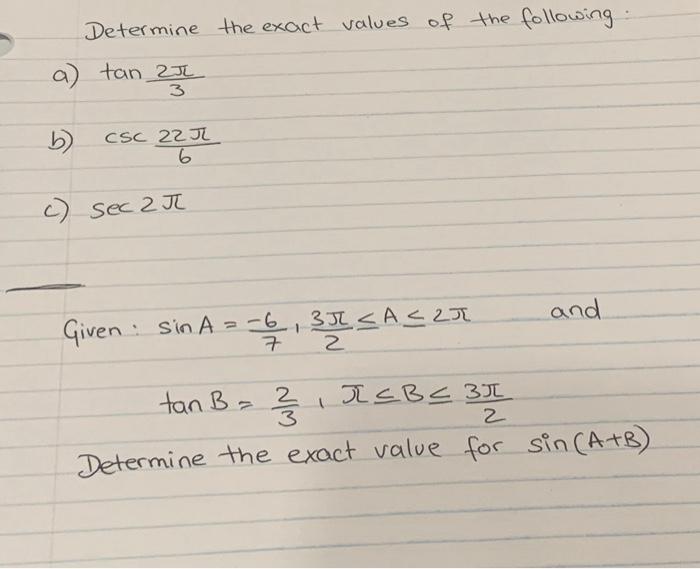 Determine the exact values of the following:
a) tan 2π/3
b) csc 22π/6
c) sec 2π
Given: sin A = -6/7, 3π/2 ≤ A ≤ 2π and
tan B = 2/3, π ≤ B ≤ 3π/2
Determine the exact value for sin(A+B)